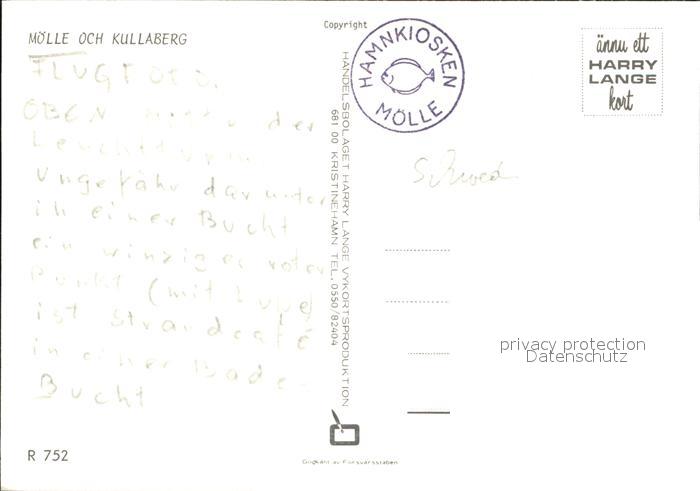 MÖLLE OCH KULLABERG
FLUGFOTO.
OBEN der
Leuchtturm
Ungefähr darunter
in einer Bucht
ein winziger roter
Punkt (mit Lupe)
ist Strandcafé
in einer Bade-
Bucht
R 752
Copyright
HANDELSBOLAGET HARRY LANGE VYKORTSPRODUKTION
681 00 KRISTINEHAMN TEL. 0550/82404
Godkänt av Försvarsstaben
HAMNKIOSKEN
MÖLLE
ännu ett
HARRY
LANGE
kort
privacy protection
Datenschutz